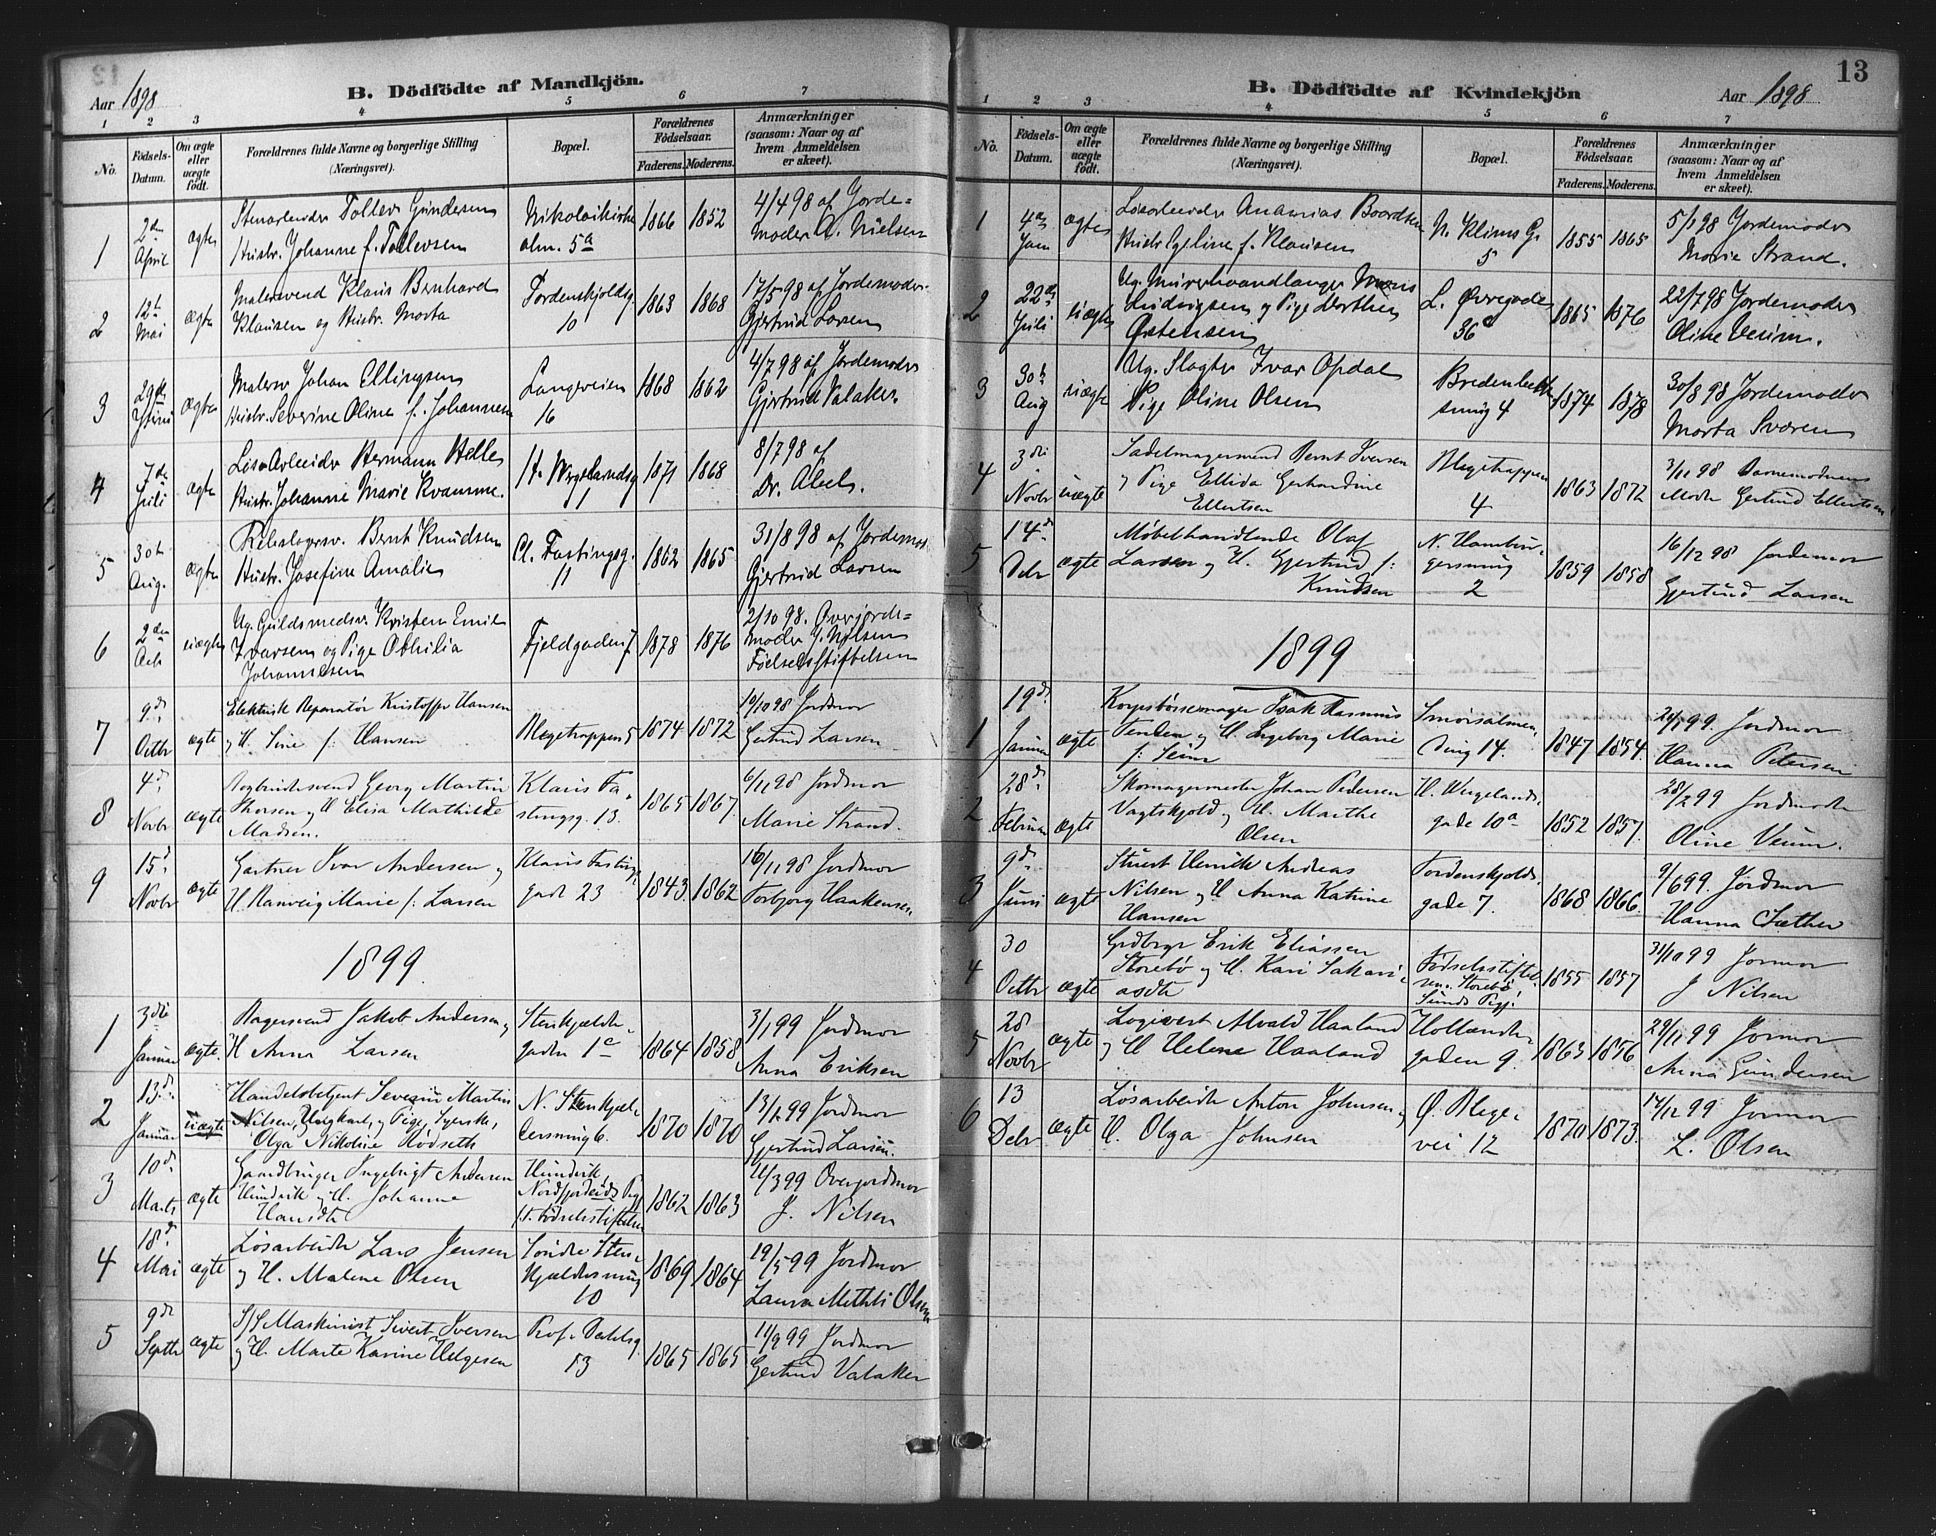 Aar 1898
B. Dödfödte af Mandkjön.
1 2 3 4 5 6 7
No.
Födsels-Datum.
Om ægte eller uægte födt.
Forældrenes fulde Navne og borgerlige Stilling
(Næringsvei).
Bopæl.
Forældrenes Födselsaar.
Faderens. Moderens.
Anmærkninger
(saasom: Naar og af
Hvem Anmeldelsen
er skeet).
1 2den April ægte Husbr. Johanne f. Tollevsen 1866 1852 4/4 98 af Jorde=
moder A. Nielsen
2 12te Mai ægte Malersvend Klaus Bernhard
Klausen og Hustr. Marta
Tordenskjoldsg. 10 1863 1868 17/5 98 af Jordemoder
Gjertrud Larsen
3 ægte Malersv Johan Ellingsen
Hustr. Severine Oline f. Johannesen
Langeveien 16 1868 1862 4/7 98 af Jordemoder
Gjertrud Valaker
4 7de Juli ægte Løsarbeider Hermann Helle
Hustr. Johanne Marie Kvamme.
1 1871 1868 8/7 98 af
Dr. Abel.
5 30te Aug. ægte Rebslagersv. Bernt Knudsen
Hustr. Josefine Amalie
Cl. Fastingsg. 11 1862 1865 31/8 98 af Jordemor
Gjertrud Larsen
6 2den uægte Ug. Guldsmedsv. Kristen Emil
Ivarsen og Pige Othilia
Johannesen
Fjeldgaden 7 1878 1876 2/10 98. Overjorde=
moder J. Nilsen
Fødselsstiftelsen
7 9de Octbr ægte Elektrisk Reparatør Kristoffer Hansen
og H. Sine f: Hansen
Blegetrappen 5 1874 1872 10/10 98 Jordmor
Gertrud Larsen
8 4de Novbr ægte Bogtrykersvend Georg Martin
Thorsen og H Elisa Mathilde
Madsen.
Klaus Fa-
stingsg. 13. 1865 1867. 6/11 98 Jordmor
Marie Strand.
9 15de Novbr ægte Gartner Ivar Andersen og
H. Ranveig Marie f: Larsen
Klaus Fastings
gade 23 1843. 1862 16/11 98 Jordmor
Torbjørg Haakensen
1899.
1 3die Januar ægte. Bagersvend Jakob Andersen og
H Anna Larsen
gaden 1c 1864 1858 3/1 99 Jordmor
Anna Eriksen
2 13de Januar uægte Handelsbetjent Severin Martin
Nilsen, Ungkarl, og Pige, Syerske,
Olga Nikoline Rødseth
1870 1870 13/1 99 Jordmor
Gjertrud Larsen.
3 10de Marts ægte Gaardbruger Ingebrigt Andersen
Hundvik og H. Johanne
Hansdtr
Hundvik,
Nordfjordeids Pgj
p.t. Fødselsstiftelsen
1862 1863 11/3 99 Overjordmor
J. Nilsen
4 18de Mai ægte Løsarbeider Lars Jensen
og H. Malene Olsen
Søndre Sten-
kjeldersmug
10 1869 1864 19/5 99 Jordmor
Laura Olsen
5 9de Septbr ægte S/S Maskinist Sivert Iversen
og H. Marte Karine Helgesen
Prof. Dahlsg.
13 1865 1865 11/9 99 Jordmor
Gertrud Valaker
13
B. Dödfödte af Kvindekjön
Aar 1898
1 2 3 4 5 6 7
No.
Födsels-Datum.
Om ægte eller uægte födt.
Forældrenes fulde Navne og borgerlige Stilling
(Næringsvei).
Bopæl.
Forældrenes Födselsaar.
Faderens. Moderens.
Anmærkninger
(saasom: Naar og af
Hvem Anmeldelsen
er skeet).
1 4de Jan ægte Løsarbeider Ananias Boardsen
f. Klausen
N. Klims G.
5 1855 1865 5/1 98 Jordemoder
Marie Strand.
2 22de Juli uægte Ug. Murerhaandlanger Mons
Ludvigsen og Pige Dorthea
Østensen
L. Øvregade
36c 1865 1876 22/7 98 Jordemoder
Oline Veum.
3 30te Aug uægte Ug. Slagter Ivar Opdal
Pige Oline Olsen
Bredenbeck
smug 4 1874 1878 30/8 98 Jordemoder
Marta Sværen
4 3die Novbr uægte Sadelmagersvend Bernt Iversen
og Pige Ellida Gerhardine
Ellertsen
Blegetrappen
4 1863 1872 3/11 98 Barnemoderens
Moder Gertrud Ellertsen
5 14de Debr ægte Møbelhandlende Olaf
Larsen og H. Gjertrud f:
Knudsen
N. Hambur-
gersmug
2 1859 1858 16/12 98 Jordemor
Gjertrud Larsen
1899
1 19de Januar ægte Korpsbøssemager Isak Rasmus
Tenden og H. Ingeborg Marie
f: Seim
Smørsalmen-
ding 14. 1847 1854. 20/1 99 Jordmor
Hanna Petersen
2 28de Februar ægte Skomagermester Johan Pedersen
Vagtskjold og H. Marthe
Olsen
H. Wergelands-
gade 10a 1852 1857. 28/2 99 Jordmoder
Oline Veum.
3 9de Juni ægte Stuert Henrik Andreas
Nilsen og H Anna Katrine
Hansen
Tordenskjolds-
gade 7. 1868 1866. 9/6 99. Jordmor
Hanna Sæther
4 30 Octbr ægte Grdbrgr Erik Eliassen
Storebø og H. Kari Sakari-
asdtr
Fødselsstiftel-
sen. Storebø,
Sunds Pgj. 1855 1857 31/10 99 Jormor
J Nilsen
5 28 Novbr ægte Logivert Alvald Haaland
og H Helene Haaland
Hollænder-
gaden 9. 1863 1856 29/11 99 Jormor
Anna Gundersen
6 13 Debr ægte Løsarbeider Anton Johnsen og
H. Olga Johnsen
Ø. Blege-
vei 12 1870 1873. 14/12 99 Jormor
L. Olsen